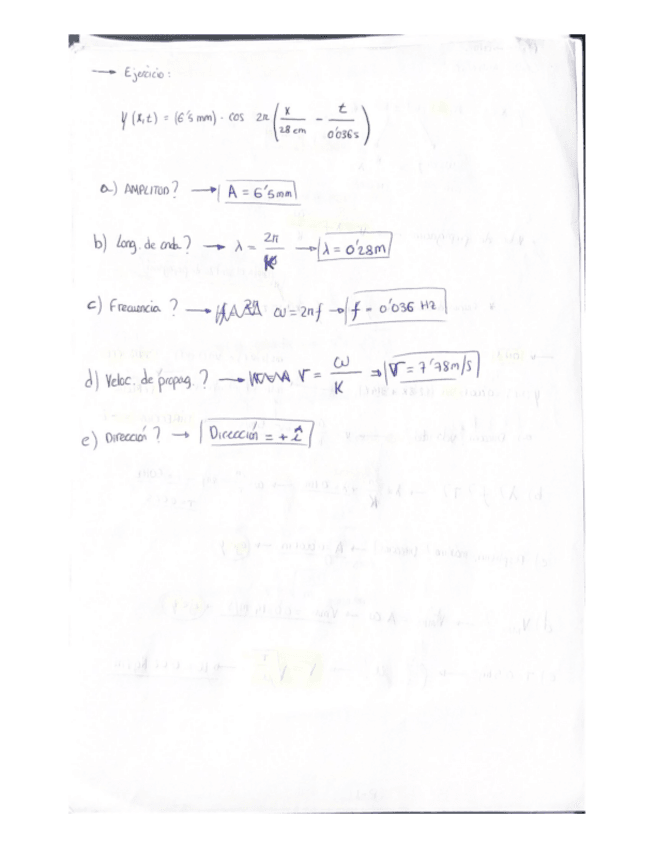 → Ejercicio:
y (x,t) = (6'5 mm) · cos 2π (x / 28 cm - t / 0'036 s)
a) AMPLITUD? → A = 6'5 mm
b) Long. de onda? → λ = 2π / K → λ = 0'28 m
c) Frecuencia? → ω = 2πf → f = 0'036 Hz
d) Veloc. de propag.? → V = ω / K ⇒ V = 7'78 m/s
e) Dirección? → Dirección = + î